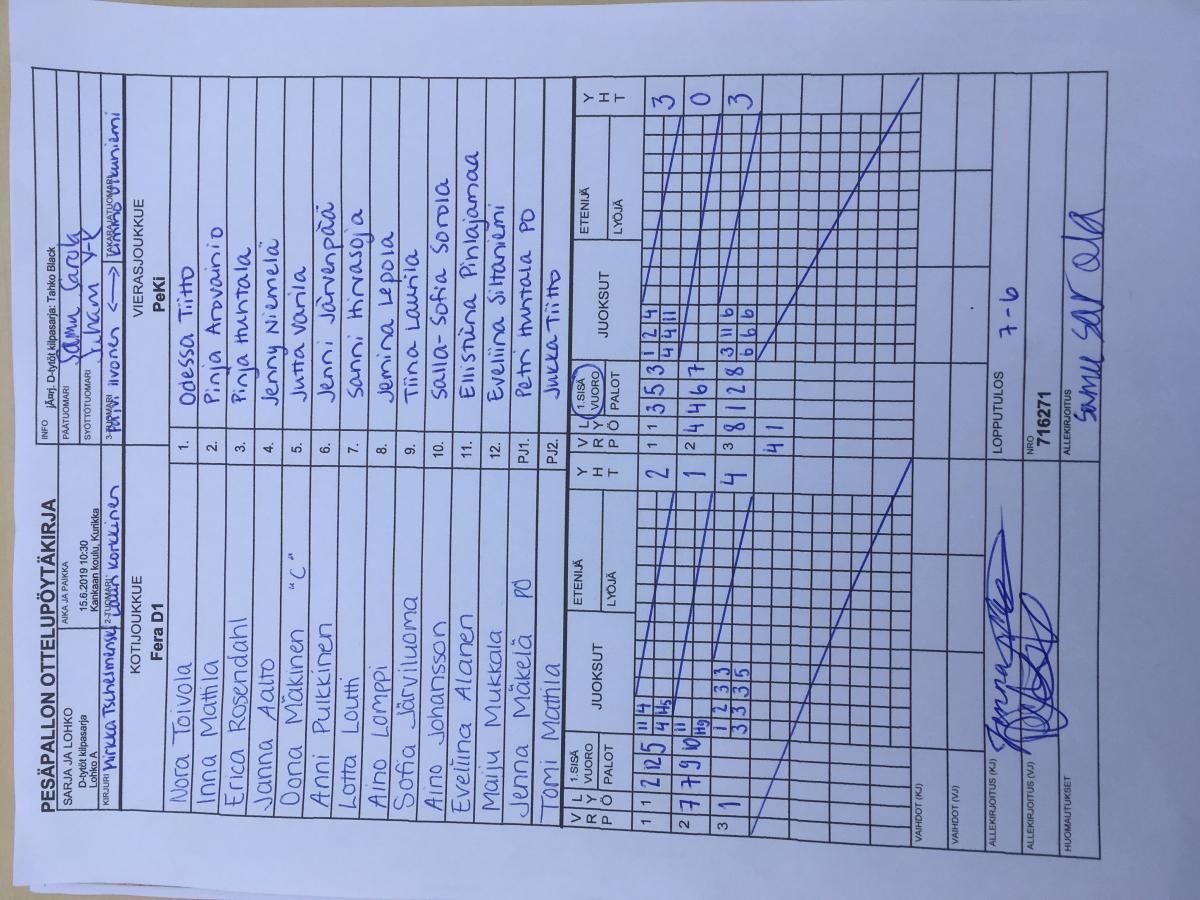 PESÄPALLON OTTELUPÖYTÄKIRJA
SARJA JA LOHKO
D-tytöt kilpasarja
Lohko A
AIKA JA PAIKKA
15.6.2019 10:30
Kankaan koulu, Kurikka
INFO jÄ¤rj. D-tytöt kilpasarja: Tahko Black
PÄÄTUOMARI Samu Sarola
SYÖTTÖTUOMARI Juhani Y-R
KIRJURI Mirkka
2-TUOMARI Korkkinen
3-TUOMARI Päivi Iivonen <-> TAKARAJATUOMARI
KOTIJOUKKUE
Fera D1
VIERASJOUKKUE
PeKi
Nora Toivola 1. Odessa Tiitto
Inna Mattila 2. Pinja Arovainio
Erica Rosendahl 3. Pinja Huntala
Janna Aalto 4. Jenny Niemelä
Oona Mäkinen "C" 5. Jutta Vanila
Anni Pulkkinen 6. Jenni Järvenpää
Lotta Louhi 7. Sanni Hirvasoja
Aino Lomppi 8. Jemina Lepola
Sofia Järviluoma 9. Tiina Laurila
Aino Johansson 10. Salla-Sofia Sorola
Eveliina Alanen 11. Ellistiina Pihlajamaa
Maiju Mukkala 12. Eveliina Siltaniemi
Jenna Mäkelä PO PJ1. Petri Huntala PO
Tomi Mattila PJ2. Jukka Tiitto
V R P L Y Ö 1.SISÄ VUORO PALOT JUOKSUT ETENIJÄ LYÖJÄ Y H T V R P L Y Ö 1.SISÄ VUORO PALOT JUOKSUT ETENIJÄ LYÖJÄ Y H T
1 1 2 12 5 11 4 2 1 1 3 5 3 1 2 4 3
4 H5 4 4 11
2 7 7 9 10 11 1 2 4 4 6 7 0
H9
3 1 1 2 3 3 4 3 8 1 2 8 3 11 6 3
3 3 3 5 6 6 6
4 1
VAIHDOT (KJ)
VAIHDOT (VJ)
ALLEKIRJOITUS (KJ)
LOPPUTULOS 7-6
ALLEKIRJOITUS (VJ)
NRO
716271
HUOMAUTUKSET
ALLEKIRJOITUS
Samu Sarola